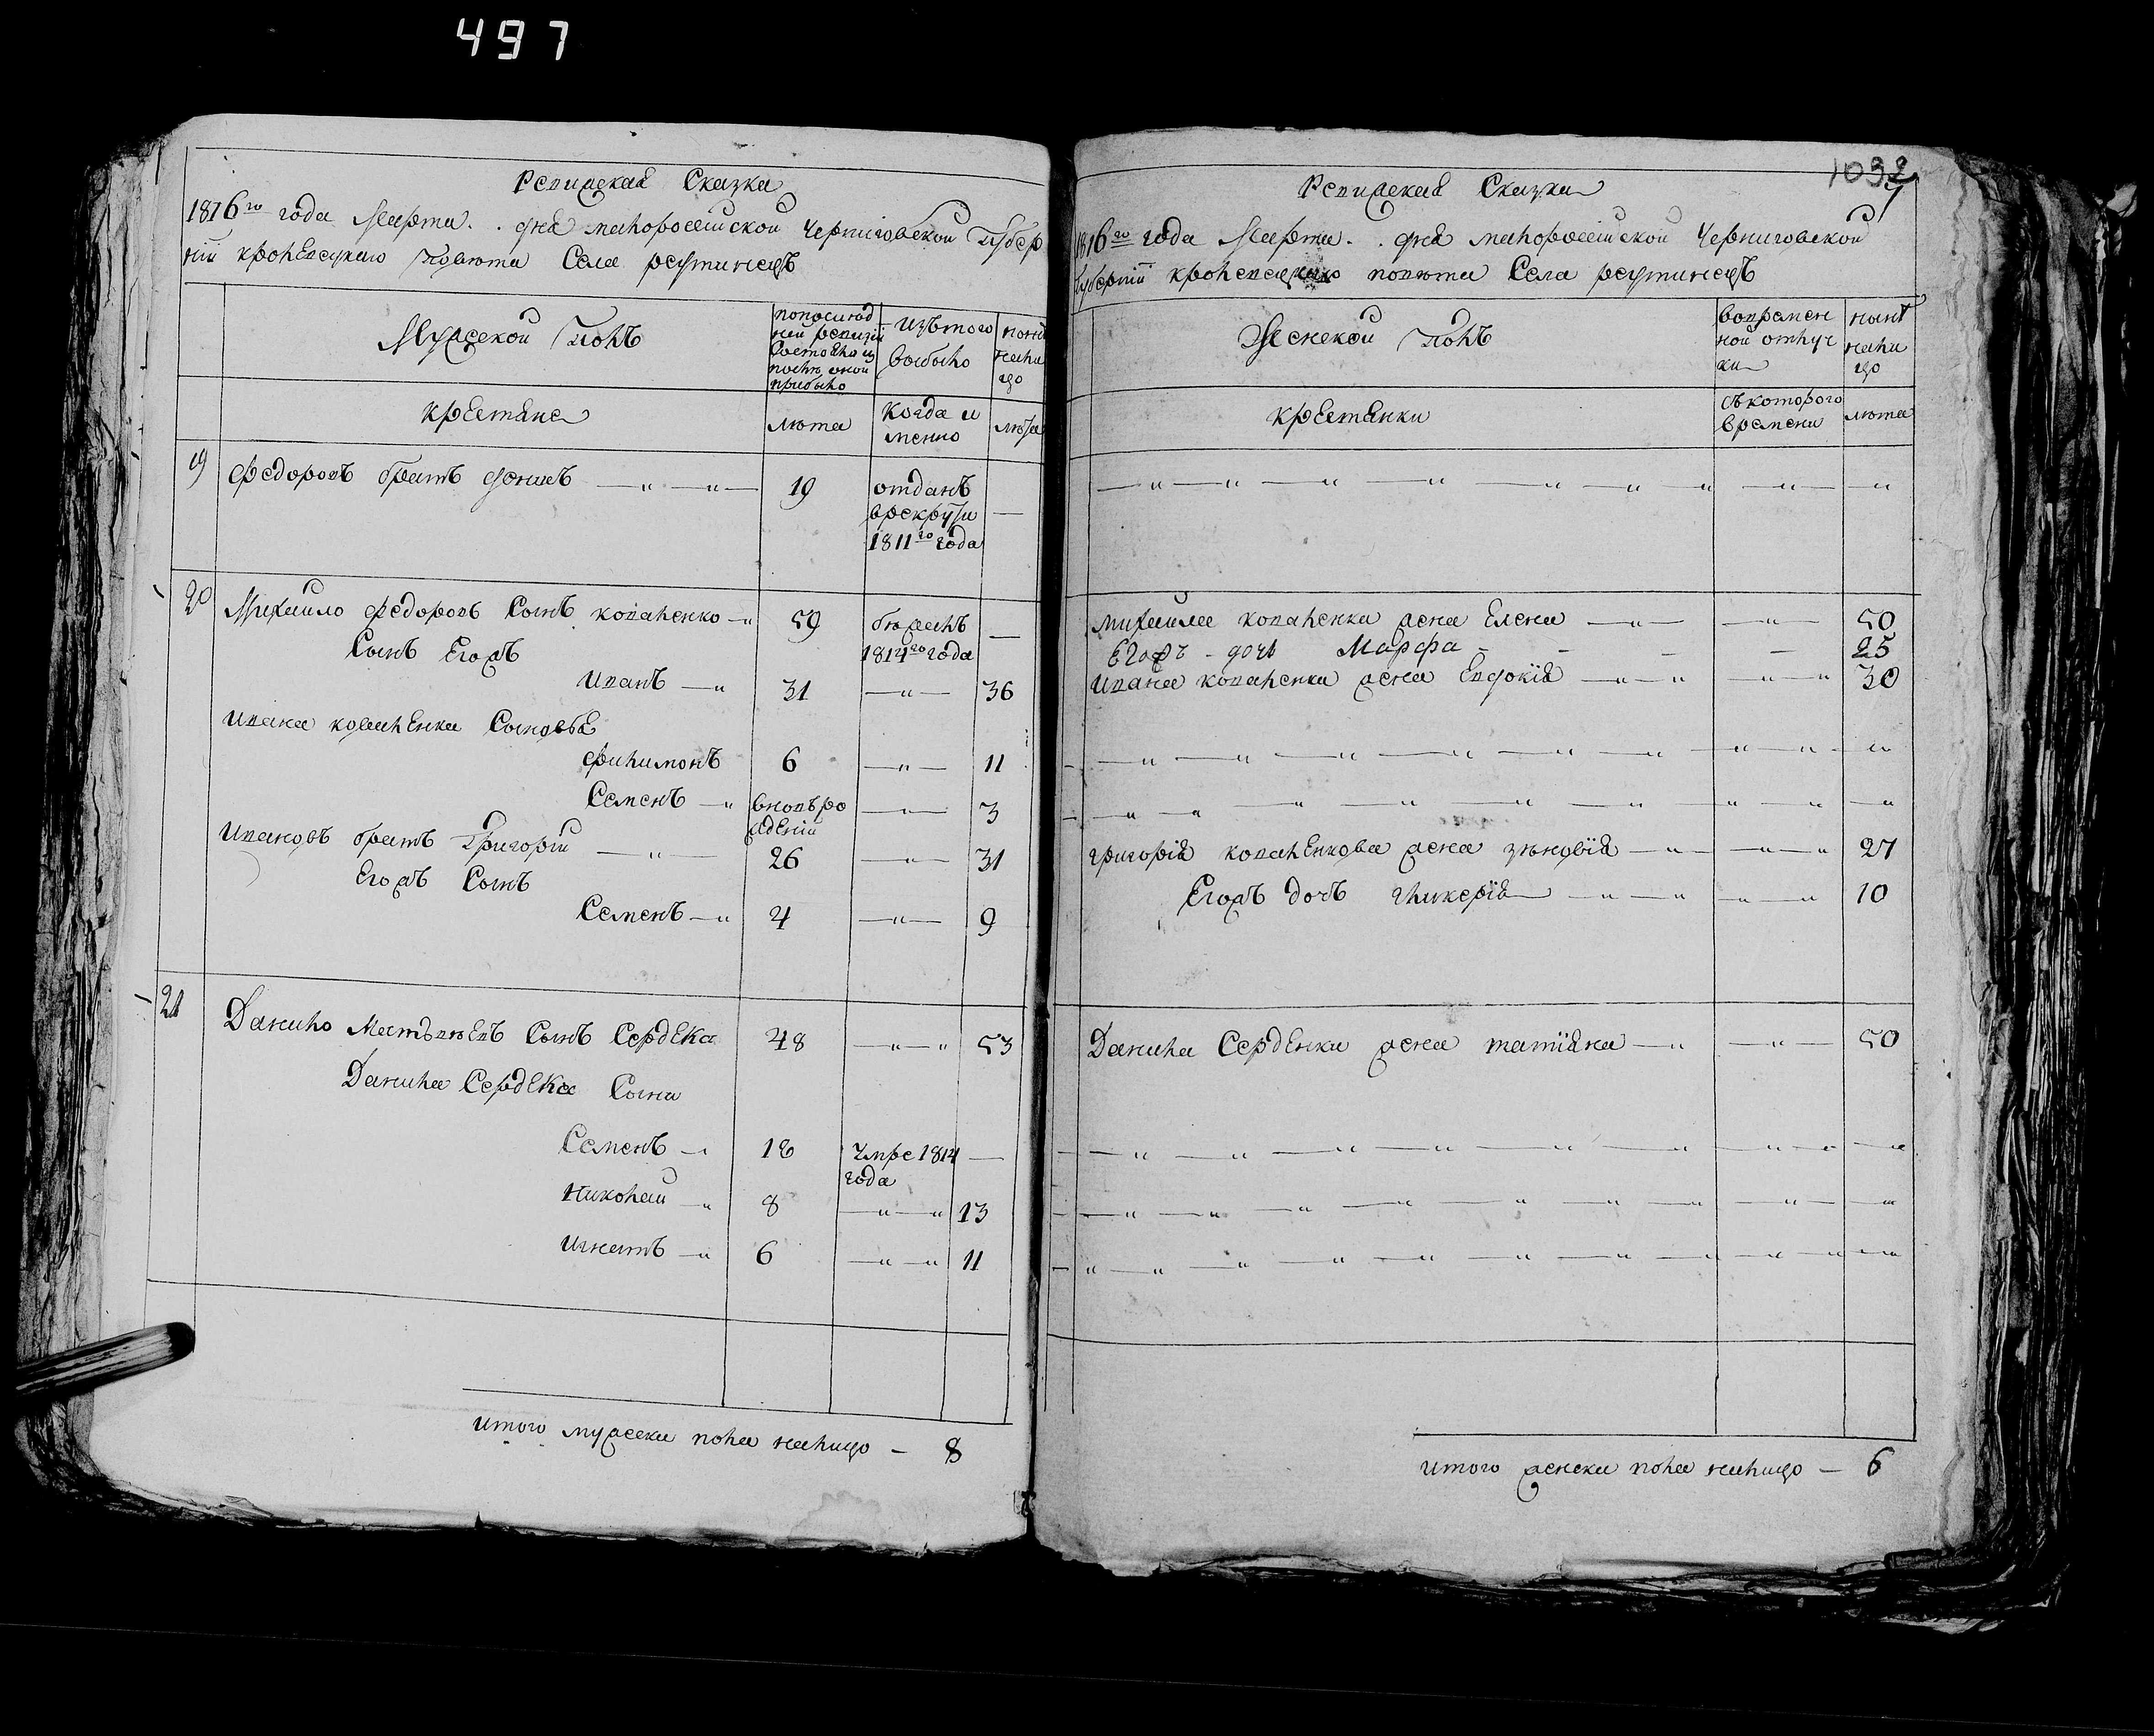 497
Ревижская Сказка
1816го года Марта . . дня малоросийской Черниговской Губер
нии кролевецкаго Повѣта Села реутинецъ
Мужеской Полъ
попослѣд
ней ревизіи
Состояло и
послѣ оной
прибыло
Изътого
выбыло
нынѣ
нали
цо
крестяне
лѣта
Когда и
менно
лѣта
19 Федоровъ братъ денисъ 19 отданъ
врекруты
1811го года
20 Михайло Федоровъ Сынъ коваленко 59 бѣжалъ
1814го года
Сынъ Егожъ
Иванъ 31 36
Ивана коваленка Сыновье
Филимонъ 6 11
Семенъ вновъро
жденій 3
Ивановъ братъ Григорій 26 31
Егожъ Сынъ
Семенъ 4 9
21 Данило Матвѣевъ Сынъ Сердека 48 53
Данила Сердека Сини
Семенъ 18 умре 1814
года
Николай 8 13
Игнатъ 6 11
итого мужеска пола налицо — 8
1032
7
Ревижская Сказка
1816го года Марта . . дня малоросійской Черниговской
Губерніи кролевецкаго повѣта Села реутинецъ
Женской Полъ
вовремен
ной отлуч
ки
нынѣ
нали
цо
крестянки
съкоторого
времени
лѣта
михайла коваленка жена Елена 50
Егожъ - дочь Марфа 25
Ивана коваленка жена Евдокія 30
григорія коваленкова жена зѣновія 27
Егожъ дочъ гликерія 10
Данила Серденка жена татіяна 50
итого женска пола налицо — 6